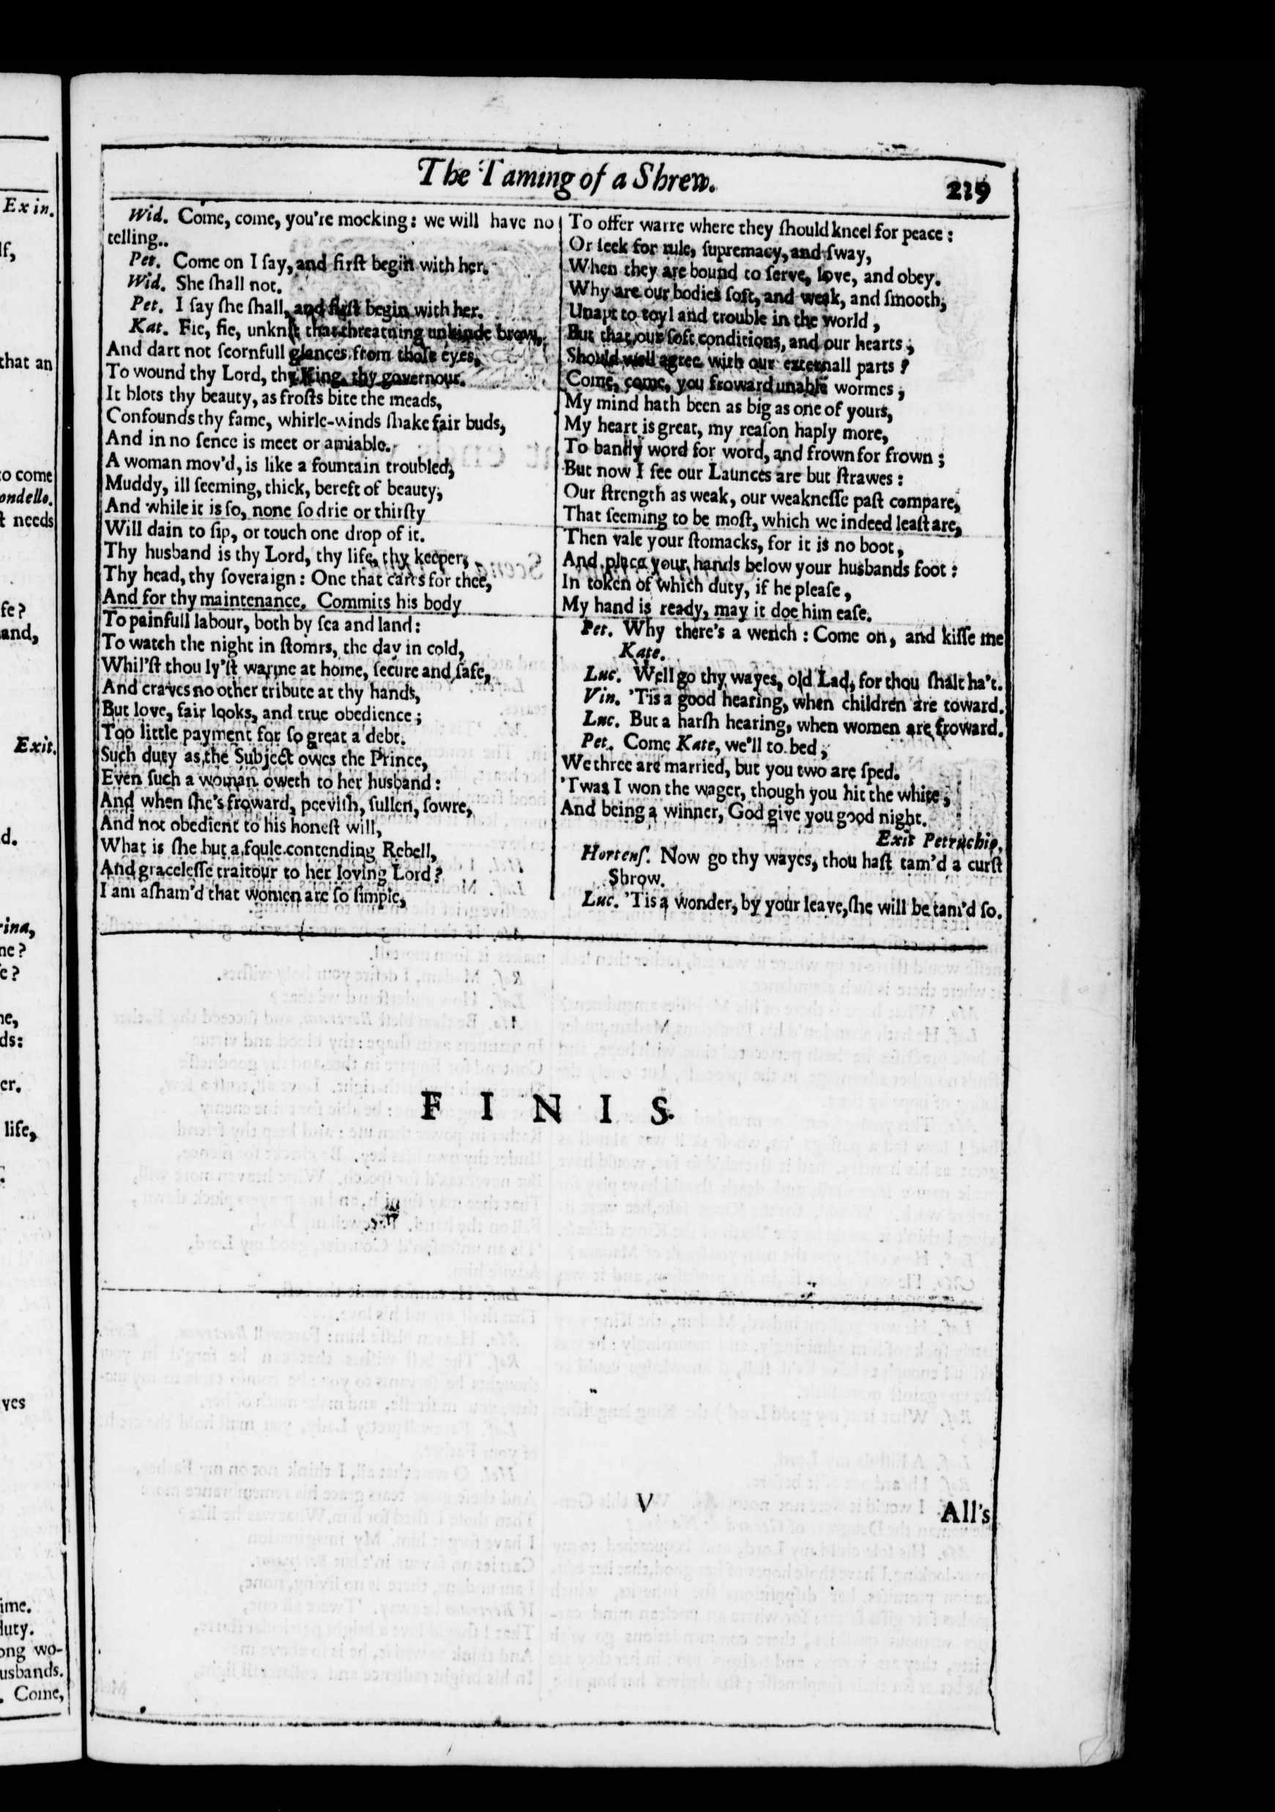 The Taming of a Shrew.
219
Wid. Come, come, you're mocking: we will have no
telling..
Pet. Come on I ſay, and firſt begin with her.
Wid. She ſhall not.
Pet. I ſay ſhe ſhall, and firſt begin with her.
Kat. Fie, fie, unknit that threatning unkinde brow,
And dart not ſcornfull glances from thoſe eyes,
To wound thy Lord, thy King, thy governour.
It blots thy beauty, as froſts bite the meads,
Confounds thy fame, whirle-winds ſhake fair buds,
And in no ſence is meet or amiable.
A woman mov'd, is like a fountain troubled,
Muddy, ill ſeeming, thick, bereft of beauty,
And while it is ſo, none ſo drie or thirſty
Will dain to ſip, or touch one drop of it.
Thy husband is thy Lord, thy life, thy keeper,
Thy head, thy ſoveraign: One that cares for thee,
And for thy maintenance. Commits his body
To painfull labour, both by ſea and land:
To watch the night in ſtomrs, the day in cold,
Whil'ſt thou ly'ſt warme at home, ſecure and ſafe,
And craves no other tribute at thy hands,
But love, fair looks, and true obedience;
Too little payment for ſo great a debt.
Such duty as the Subject owes the Prince,
Even ſuch a woman oweth to her husband:
And when ſhe's froward, peeviſh, ſullen, ſowre,
And not obedient to his honeſt will,
What is ſhe but a foule contending Rebell,
And graceleſſe traitour to her loving Lord?
I am aſham'd that women are ſo ſimple,
To offer warre where they ſhould kneel for peace:
Or ſeek for rule, ſupremacy, and ſway,
When they are bound to ſerve, love, and obey.
Why are our bodies ſoft, and weak, and ſmooth,
Unapt to toyl and trouble in the world,
But that our ſoft conditions, and our hearts,
Should well agree with our externall parts?
Come, come, you froward unable wormes,
My mind hath been as big as one of yours,
My heart is great, my reaſon haply more,
To bandy word for word, and frown for frown;
But now I ſee our Launces are but ſtrawes:
Our ſtrength as weak, our weakneſſe paſt compare,
That ſeeming to be moſt, which we indeed leaſt are,
Then vale your ſtomacks, for it is no boot,
And place your hands below your husbands foot:
In token of which duty, if he pleaſe,
My hand is ready, may it doe him eaſe.
Pet. Why there's a wench: Come on, and kiſſe me
Kate.
Luc. Well go thy wayes, old Lad, for thou ſhalt ha't.
Vin. 'Tis a good hearing, when children are toward.
Luc. But a harſh hearing, when women are froward.
Pet. Come Kate, we'll to bed,
We three are married, but you two are ſped.
'Twas I won the wager, though you hit the white,
And being a winner, God give you good night.
Exit Petruchio.
Hortenſ. Now go thy wayes, thou haſt tam'd a curſt
Shrow.
Luc. 'Tis a wonder, by your leave, ſhe will be tam'd ſo.
FINIS.
V
All's
Exin.
lf,
that an
to come
ondello.
t needs
fe?
and,
Exit.
d.
rina,
ne?
e?
ne,
ds:
er.
life,
yes
ime.
duty.
ong wo-
usbands.
. Come,